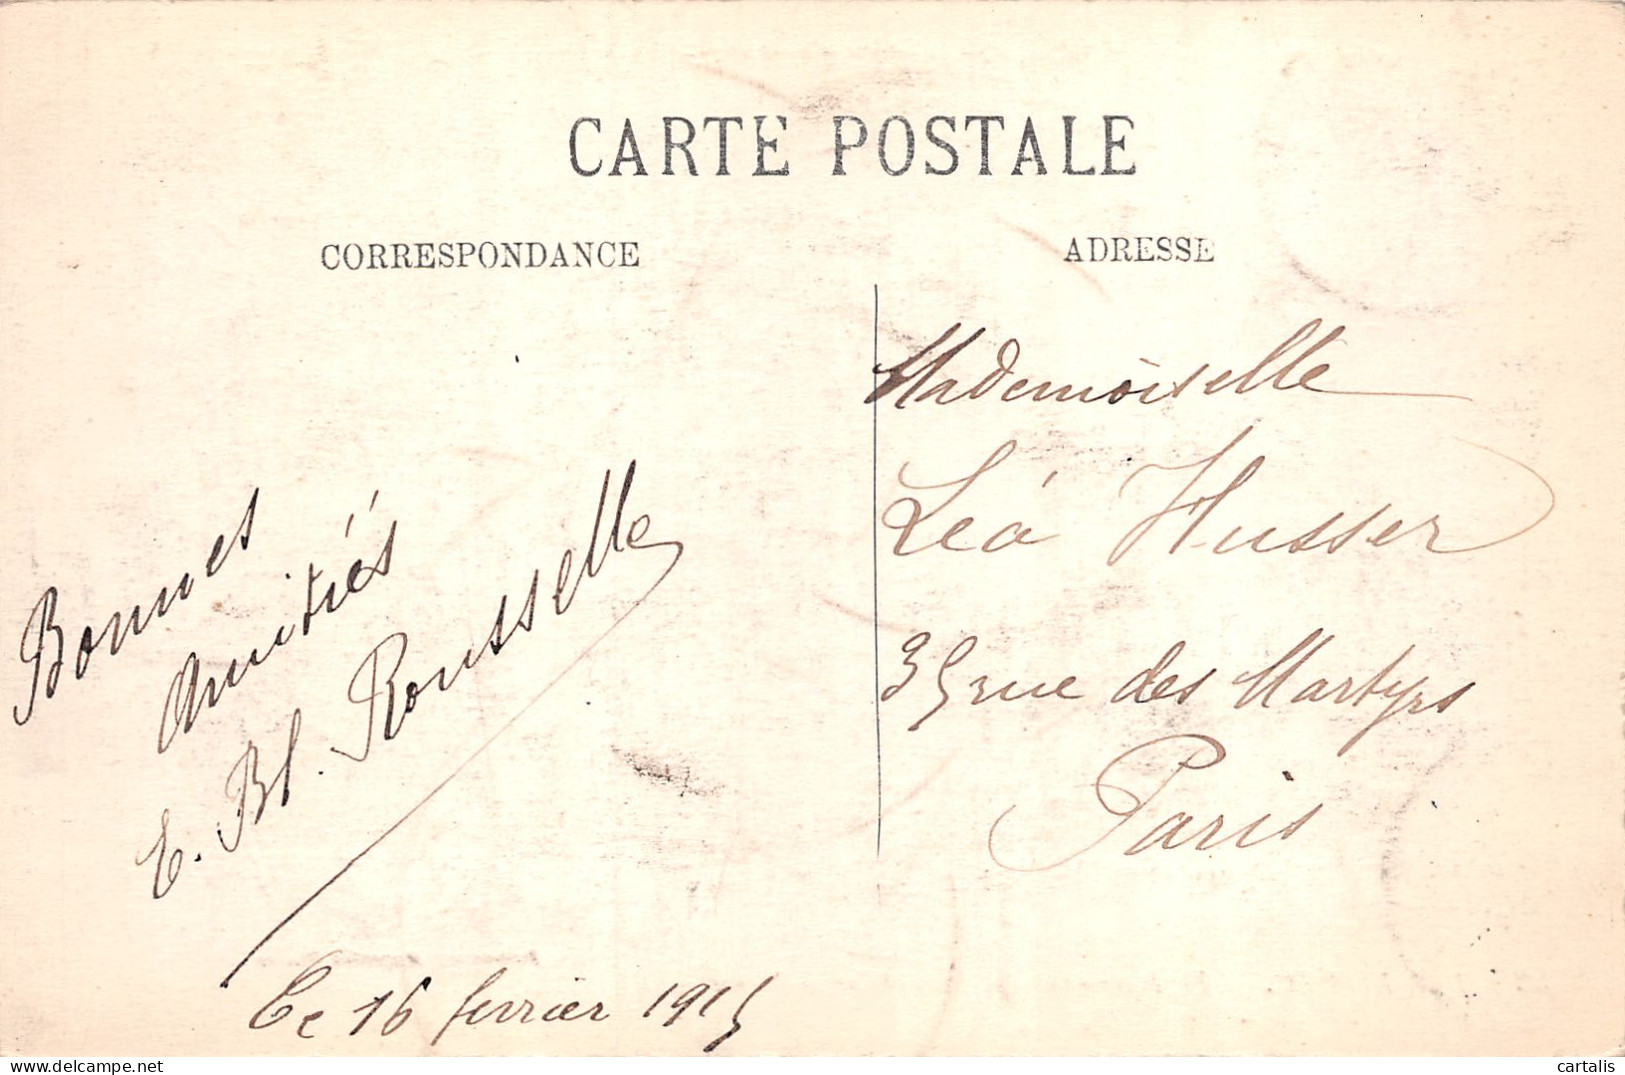 CARTE POSTALE
CORRESPONDANCE
ADRESSE
Bonnes
Amitiés
E. Bl. Rousselle
Ce 16 fevrier 1915
Mademoiselle
Léa Husser
35 rue des Martyrs
Paris
cartalis